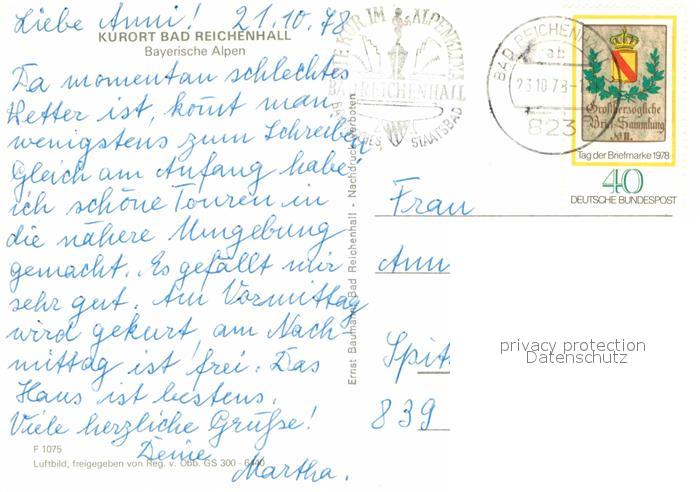 Liebe Anni! 21.10.78
KURORT BAD REICHENHALL
Bayerische Alpen
Da momentan schlechtes
Wetter ist, kommt man
wenigstens zum Schreiben.
Gleich am Anfang habe
ich schöne Touren in
die nähere Umgebung
gemacht. Es gefällt mir
sehr gut. Am Vormittag
wird gekurt, am Nach-
mittag ist frei. Das
Haus ist bestens.
Viele herzliche Grüße!
Deine
Martha.
F 1075
Luftbild, freigegeben von Reg. v. Obb. GS 300 - 6440
Ernst Baumann, Bad Reichenhall - Nachdruck verboten
DIE KUR IM ALPENKLIMA
BAD REICHENHALL
STAATSBAD
BAD REICHENHALL
ab
23.10.78
823
Großherzogliche
Brief-Sammlung
Tag der Briefmarke 1978
40
DEUTSCHE BUNDESPOST
Frau
Ann
Spit
839
privacy protection
Datenschutz